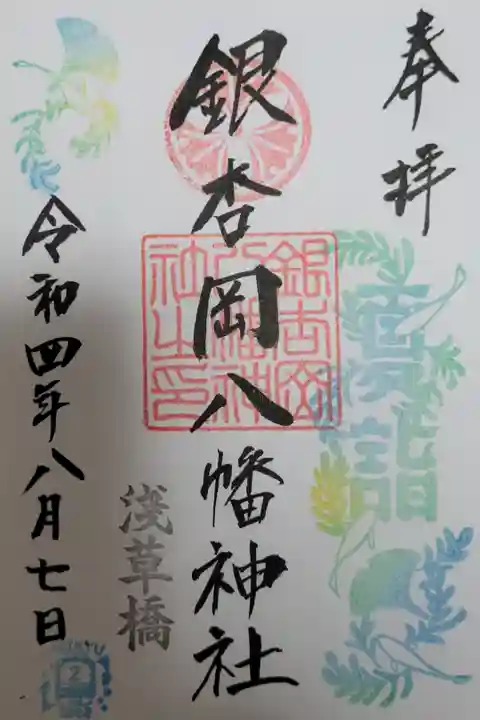 奉拝
夏詣
銀杏岡八幡神社
銀杏岡
八幡神
社之印
浅草橋
令和四年八月七日
2